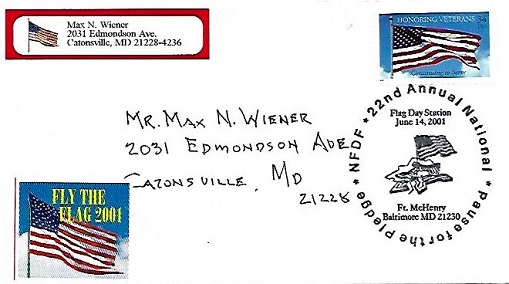 Max N. Wiener
2031 Edmondson Ave.
Catonsville, MD 21228-4236
HONORING VETERANS
Continuing to Serve
Mr. Max N. Wiener
2031 Edmondson Ave
Catonsville, MD
21228
NFDF * 22nd Annual National * Pause for the Pledge *
Flag Day Station
June 14, 2001
Ft. McHenry
Baltimore MD 21230
FLY THE
FLAG 2001